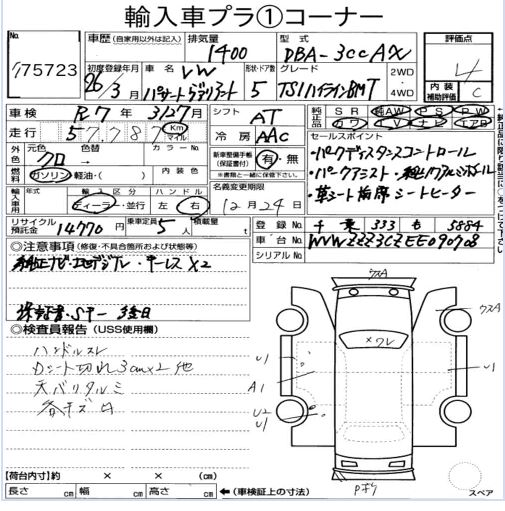 輸入車プラ①コーナー
No.
75723
車歴 (自家用以外は記入)
排気量
1400
型式
DBA-3CCAX
評価点
4
初度登録年月
26/3月
車名
VW
パサートヴァリアント
形状・ドア数
5
グレード
TSIハイラインBMT
2WD
4WD
内装
補助評価
C
車検
R7年 3/27月
シフト
AT
純正品
SR 純AW PS PW
カワ TV ナビ エアB
走行
57,787
Km
マイル
冷房
AAC
セールスポイント
・パークディスタンスコントロール
外色
元色
クロ
色替
カラーNo
新車整備手帳
(保証書付)
有・無
※書類と一緒に保管して下さい。
燃料
ガソリン・軽油・( )
内装色
・パークアシスト・純正アルミホイル
・革シート 前席シートヒーター
輸入車用
年式
輸入区分
ディーラー・並行
ハンドル
左・右
名義変更期限
12月24日
リサイクル
預託金
14770円
乗車定員
5人
積載量
登録No.
千葉 333 も 5884
車台No.
WVWZZZ3CZEE090708
シリアルNo.
◎注意事項 (修復・不具合箇所および状態等)
純正ナビ・地デジタル・キーレス×2
◎検査員報告 (USS使用欄)
ハンドルスレ
Dシート切れ3cm×2 他
天バリタルミ
各キズ凹
ウスA
ウスA
×ワレ
U1
U1
A1
U2
U1
Pキリ
【荷台内寸】約 × × (cm)
長さ cm 幅 cm 高さ cm ←(車検証上の寸法)
スペア